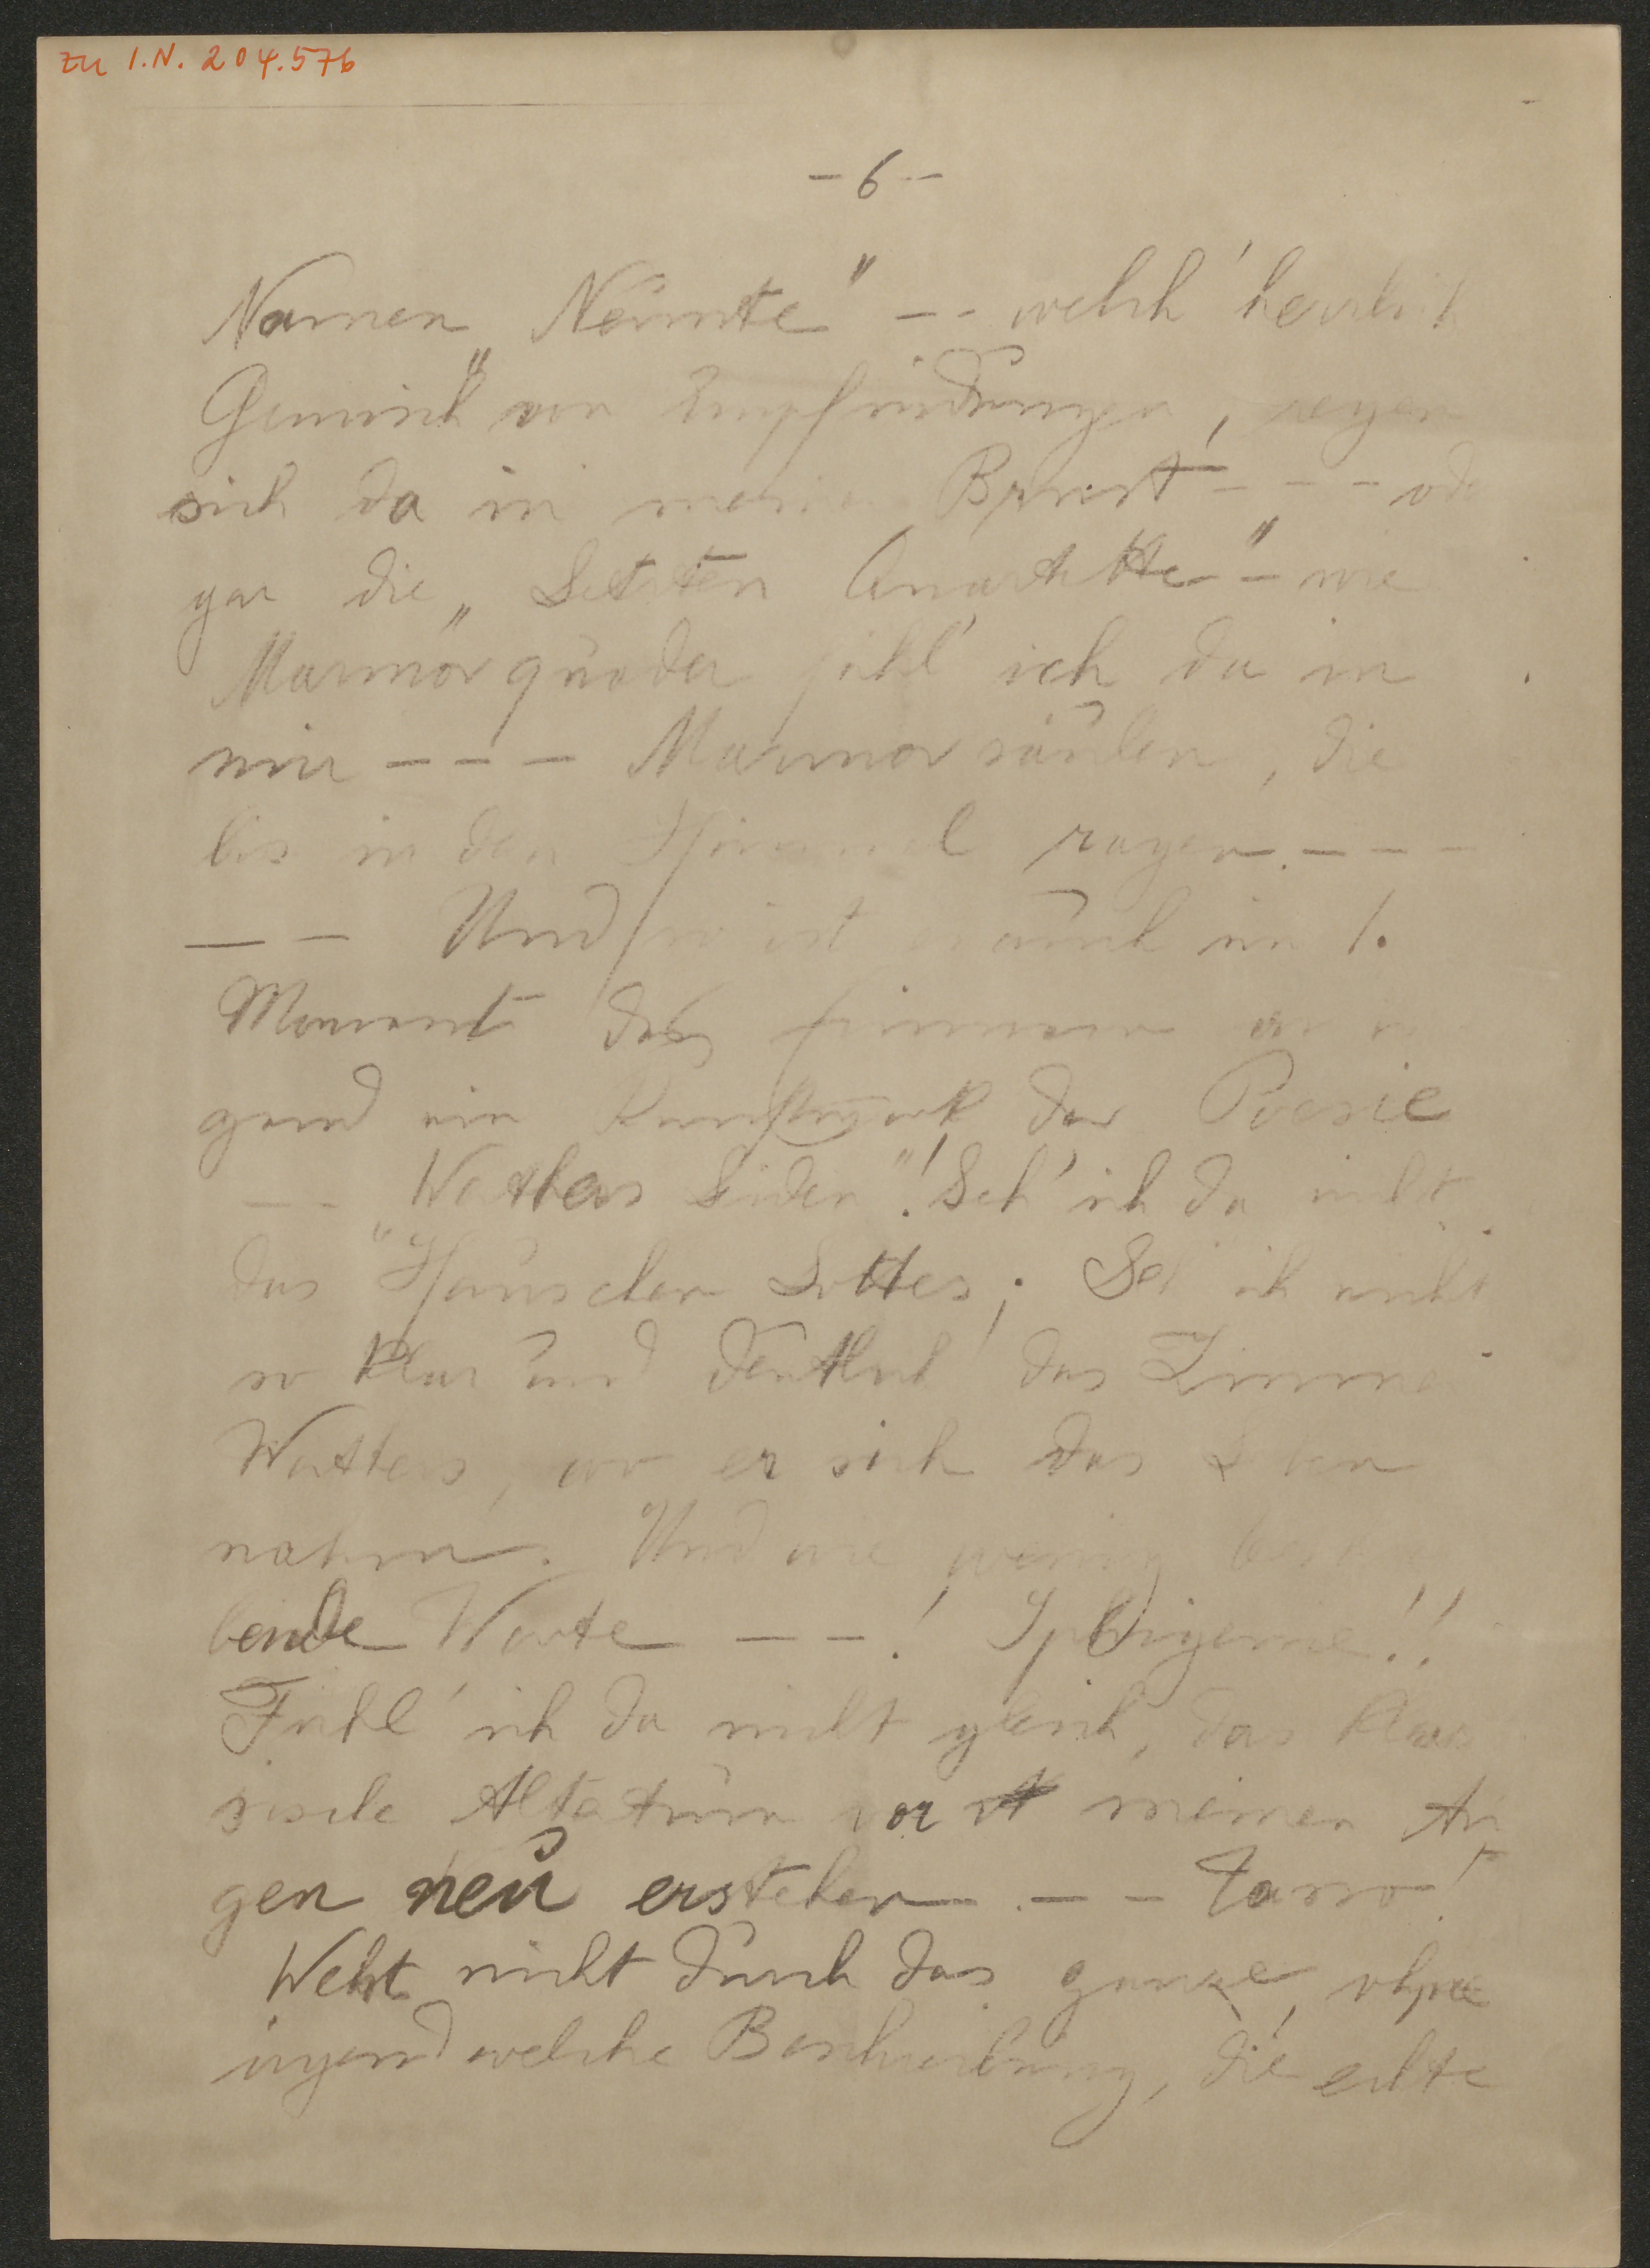 zu I.N. 204.576
- 6 -
Namen „Neunte" -- welch' herrlich
Gemisch von Empfindungen, regen
sich da in meiner Brust - - - oder
gar die „Letzten Quartette" - wie
Marmorquader fühl' ich da in
mir - - - Marmorsäulen, die
bis in den Himmel ragen. - - -
- - Und so ist es auch im 1.
Moment das
ein Kunstwerk der Poesie
- - „Werthers Leiden"! Seh' ich da nicht
das Häuschen Lottes; Seh' ich nicht
so klar und deutlich das Zimmer
Werthers, wo er sich das Leben
nahm. Und wie wenig beschrei
bende Worte - - ! Iphigenie!!
Fühl' ich da nicht gleich, das klas
sische Altertum vor meinen Au
gen neu erstehen. - - Tasso!
Weht nicht durch das ganze, ohne
irgend welche Beschreibung, die echte